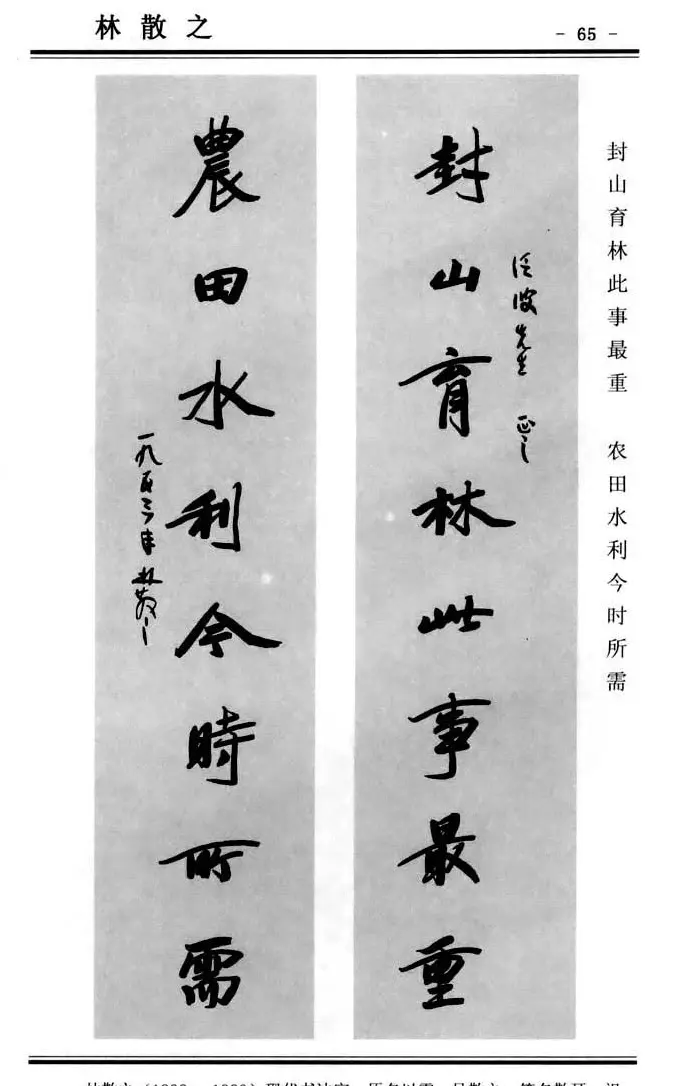 林散之
- 65 -
封山育林此事最重 农田水利今时所需
封山育林此事最重
先生 正之
農田水利今時所需
一九五三年 林散之